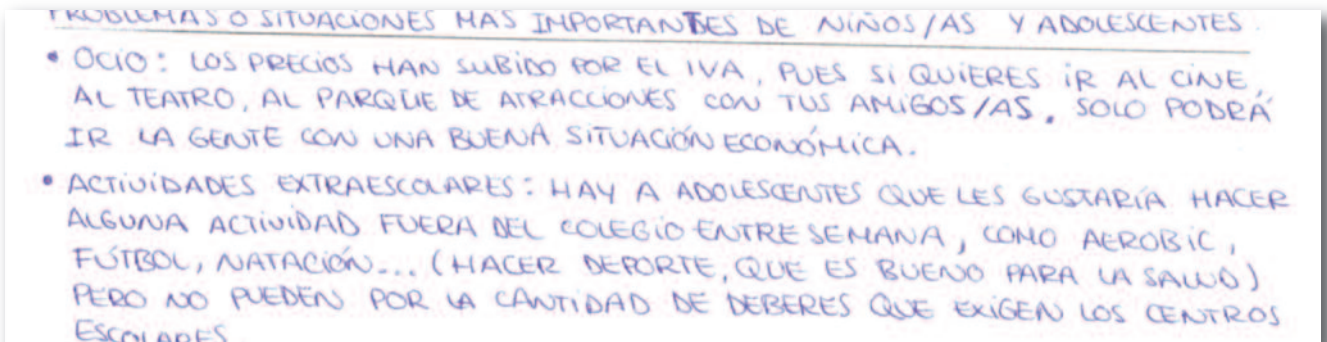 PROBLEMAS O SITUACIONES MAS IMPORTANTES DE NIÑOS/AS Y ADOLESCENTES.
• OCIO: LOS PRECIOS HAN SUBIDO POR EL IVA, PUES SI QUIERES IR AL CINE,
AL TEATRO, AL PARQUE DE ATRACCIONES CON TUS AMIGOS/AS, SOLO PODRÁ
IR LA GENTE CON UNA BUENA SITUACIÓN ECONÓMICA.
• ACTIVIDADES EXTRAESCOLARES: HAY A ADOLESCENTES QUE LES GUSTARÍA HACER
ALGUNA ACTIVIDAD FUERA DEL COLEGIO ENTRE SEMANA, COMO AEROBIC,
FÚTBOL, NATACIÓN... (HACER DEPORTE, QUE ES BUENO PARA LA SALUD)
PERO NO PUEDEN POR LA CANTIDAD DE DEBERES QUE EXIGEN LOS CENTROS
ESCOLARES